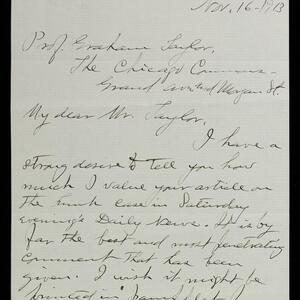 Nov. 16-1913
Prof. Graham Taylor,
The Chicago Commons-
Grand Ave and Morgan St.
My dear Mr. Taylor,
I have a
strong desire to tell you how
much I value your article on
the case in Saturday
evening's Daily News. It is by
far the best and most penetrating
comment that has been
given. I wish it might be
printed in